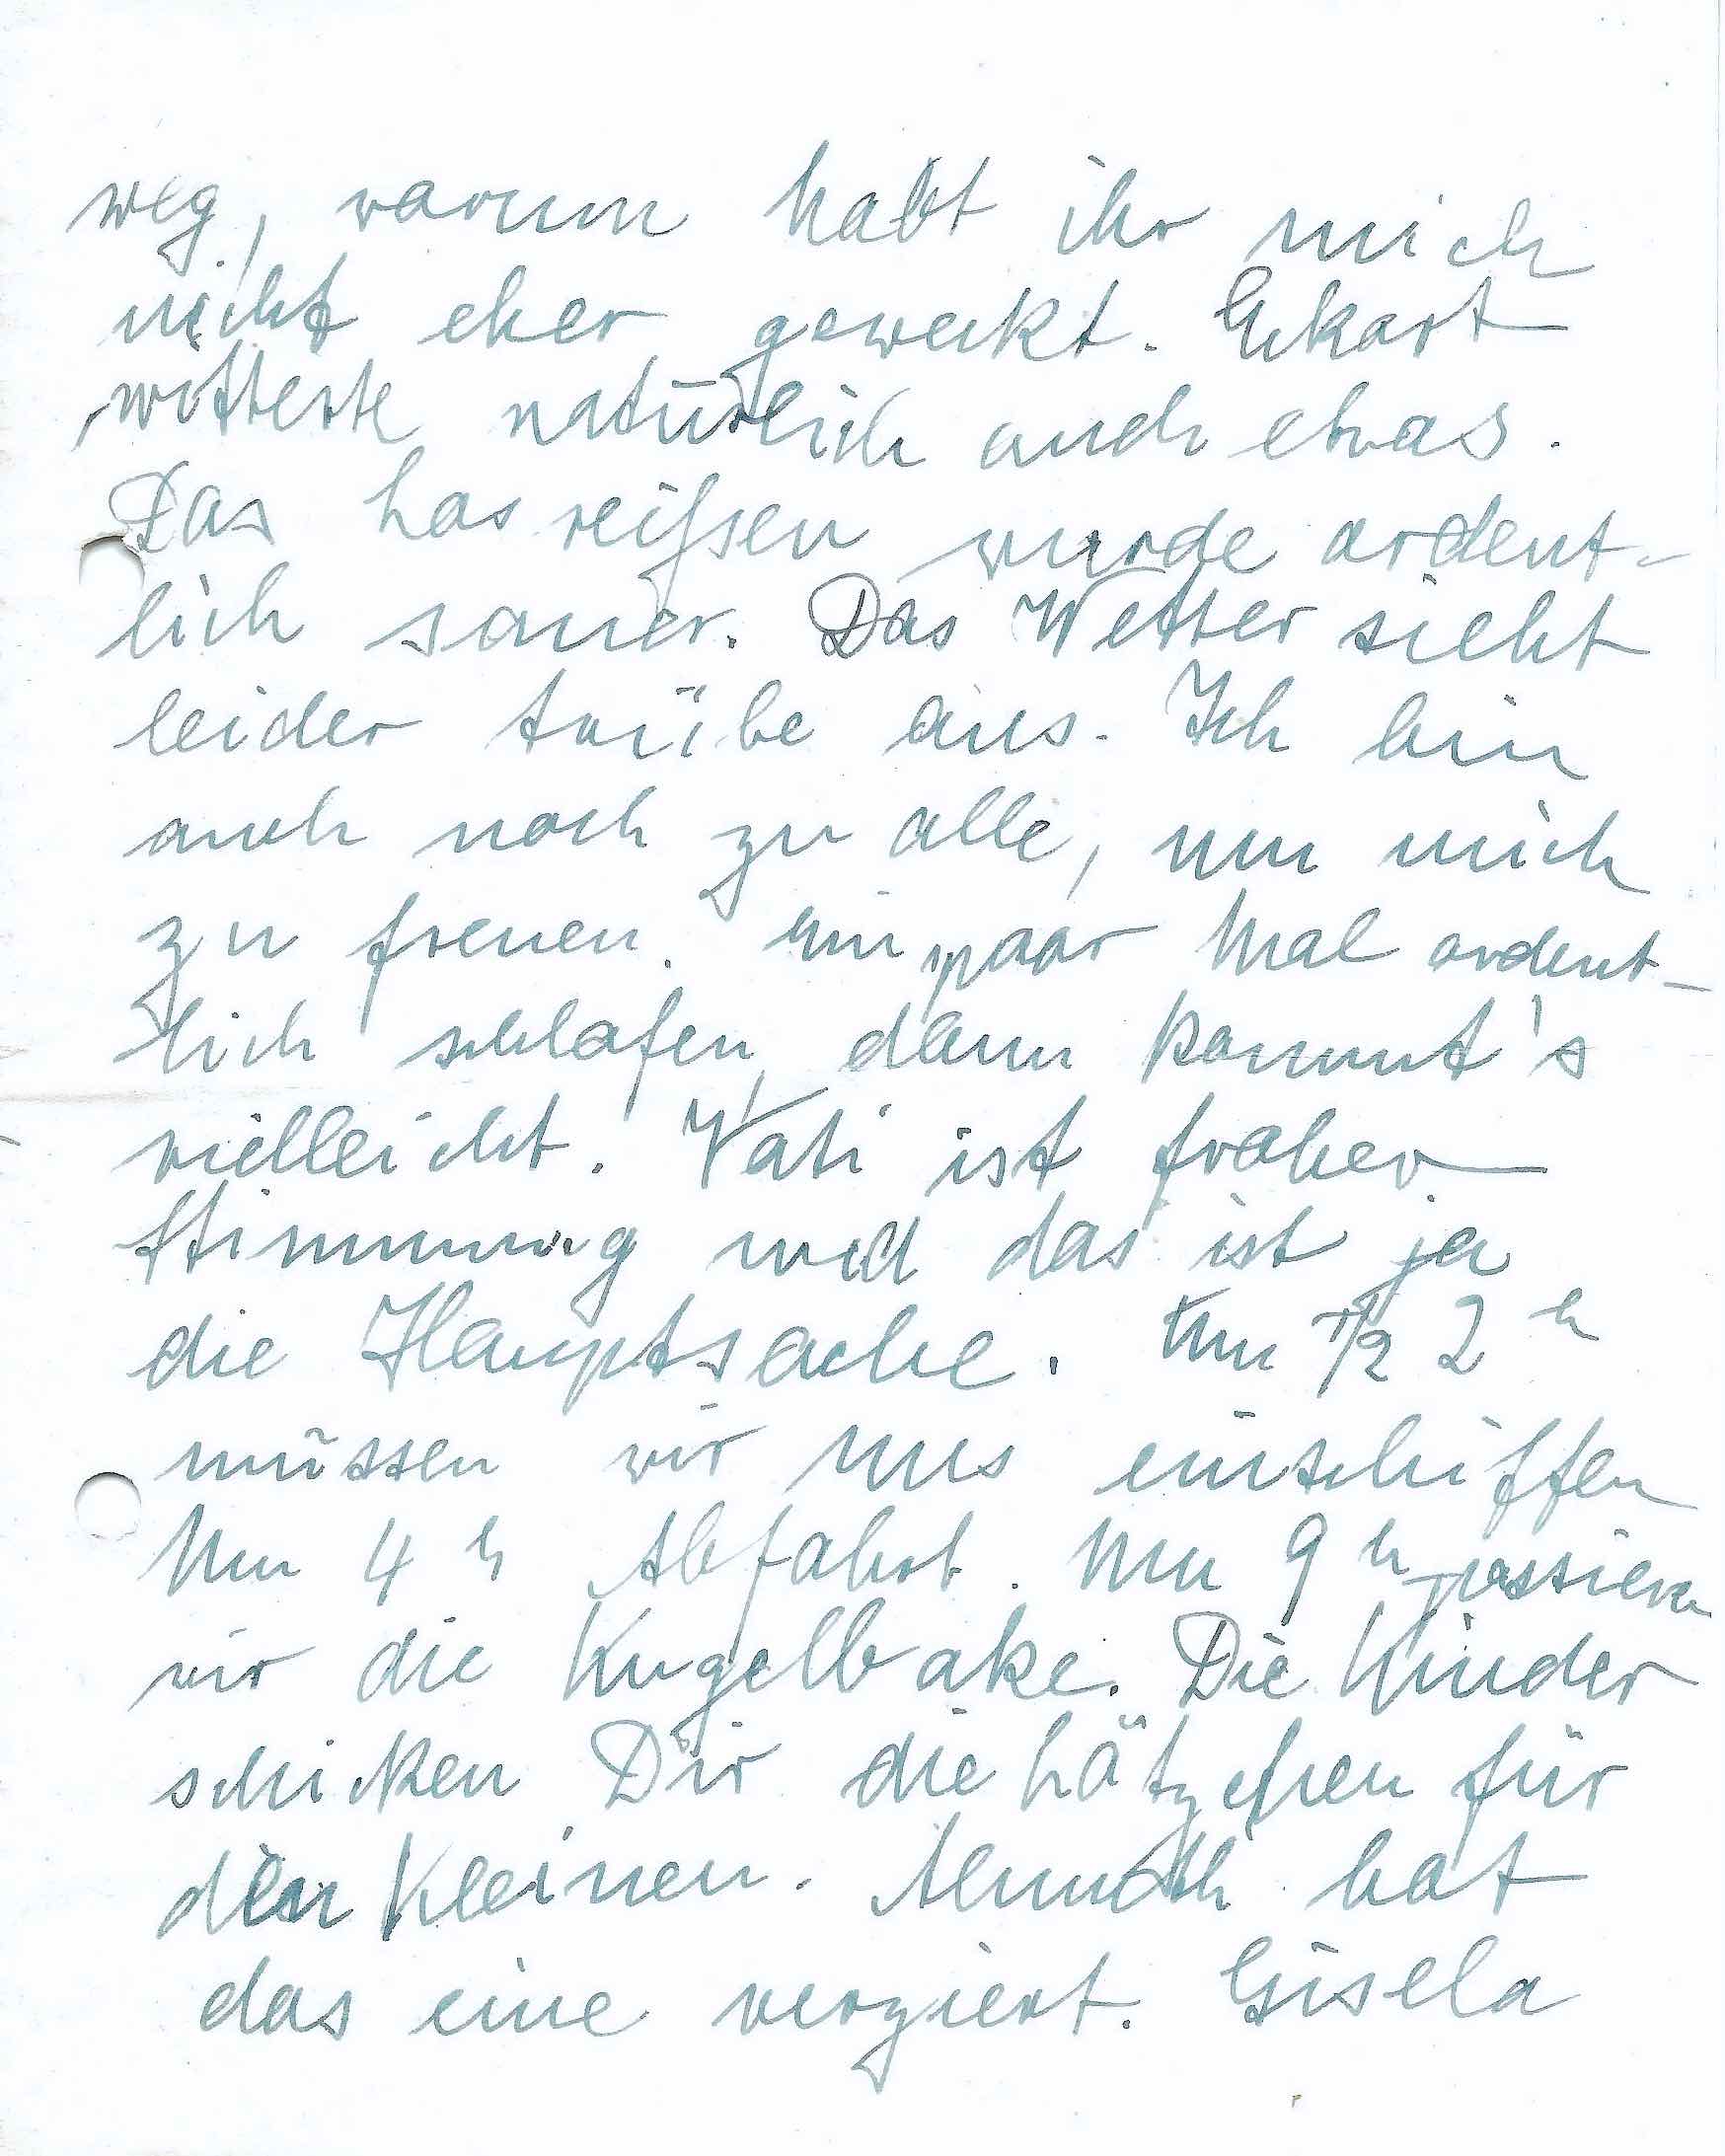 weg, warum habt ihr mich
nicht eher geweckt. Eckart
witterte natürlich auch etwas.
Das Losreißen wurde ordent-
lich sauer. Das Wetter sieht
leider trübe aus. Ich bin
auch noch zu alle, um mich
zu freuen. Ein paar Mal ordent-
lich schlafen, dann kommt's
vielleicht. Vati ist froher
Stimmung und das ist ja
die Hauptsache. Um 1/2 2 h
müssen wir uns einschiffen
Um 4 h Abfahrt. Um 9 h passieren
wir die Kugelbake. Die Kinder
schicken Dir die Lätzchen für
den Kleinen. Almuth hat
das eine verziert. Gisela